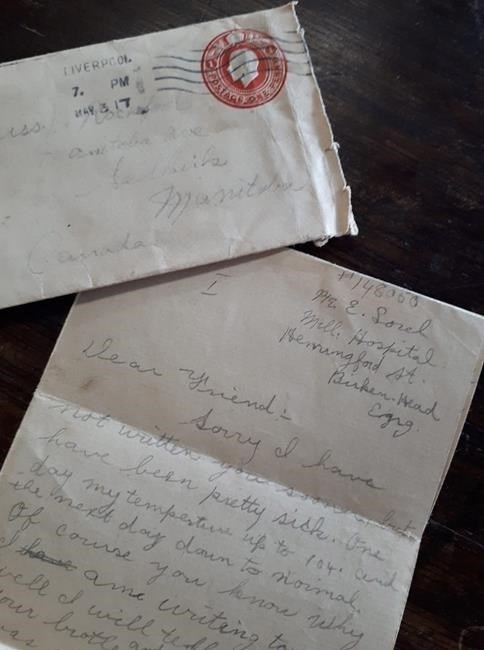 LIVERPOOL
7. PM
MAR 3 17
POSTAGE ONE PENNY
Manitoba
Canada
I
#148050
Pte. E. Sorel
Mill. Hospital
Hemingford St.
Birken-Head
Eng.
Dear Friend:-
Sorry I have
not written you sooner but
have been pretty sick. One
day my temperture up to 104° and
the next day down to normal.
Of course you know why
I have ame writing to
well I will tell
your brother
was